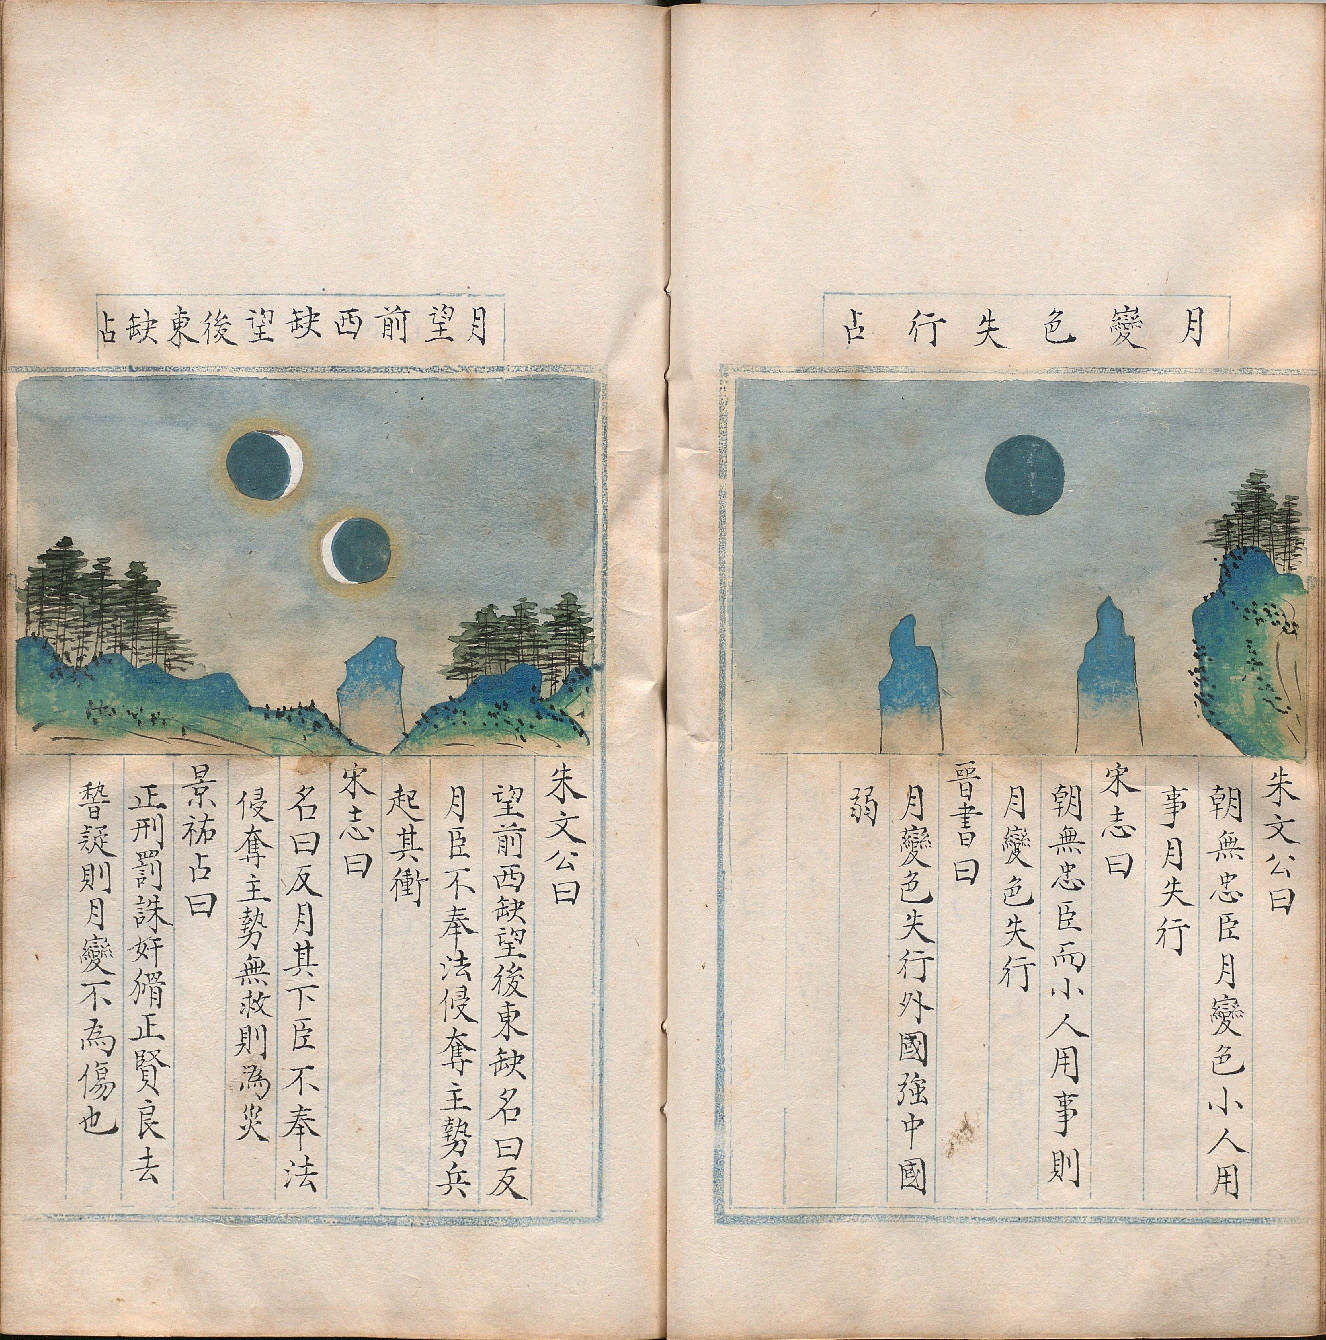 月變色失行占
朱文公曰
朝無忠臣月變色小人用
事月失行
宋志曰
朝無忠臣而小人用事則
月變色失行
晉書曰
月變色失行外國強中國
弱
月望前西缺望後東缺占
朱文公曰
望前西缺望後東缺名曰反
月臣不奉法侵奪主勢兵
起其衝
宋志曰
名曰反月其下臣不奉法
侵奪主勢無救則為災
景祐占曰
正刑罰誅奸猾正賢良去
㬱疑則月變不為傷也